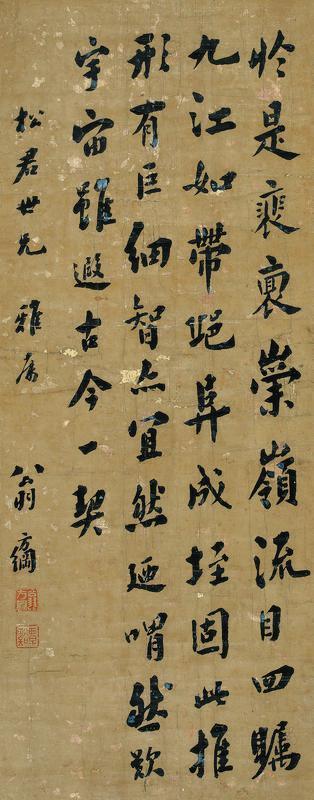 於是裵崇嶺流目四矚
九江如帶坵阜成垤固此推
形有巨細智亦宜然迺喟然歎
宇宙雖遐古今一契
松君世兄雅属
翁方綱